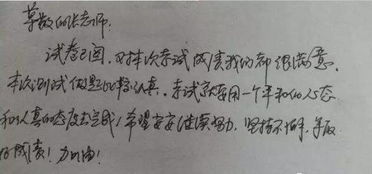 尊敬的张老师:
试卷已阅,对本次考试成绩我们都很满意,
本次测试做题比较认真。考试就要用一个平和的心态
和认真的态度去完成!希望安安继续努力,坚持不懈,争取
好成绩!加油!